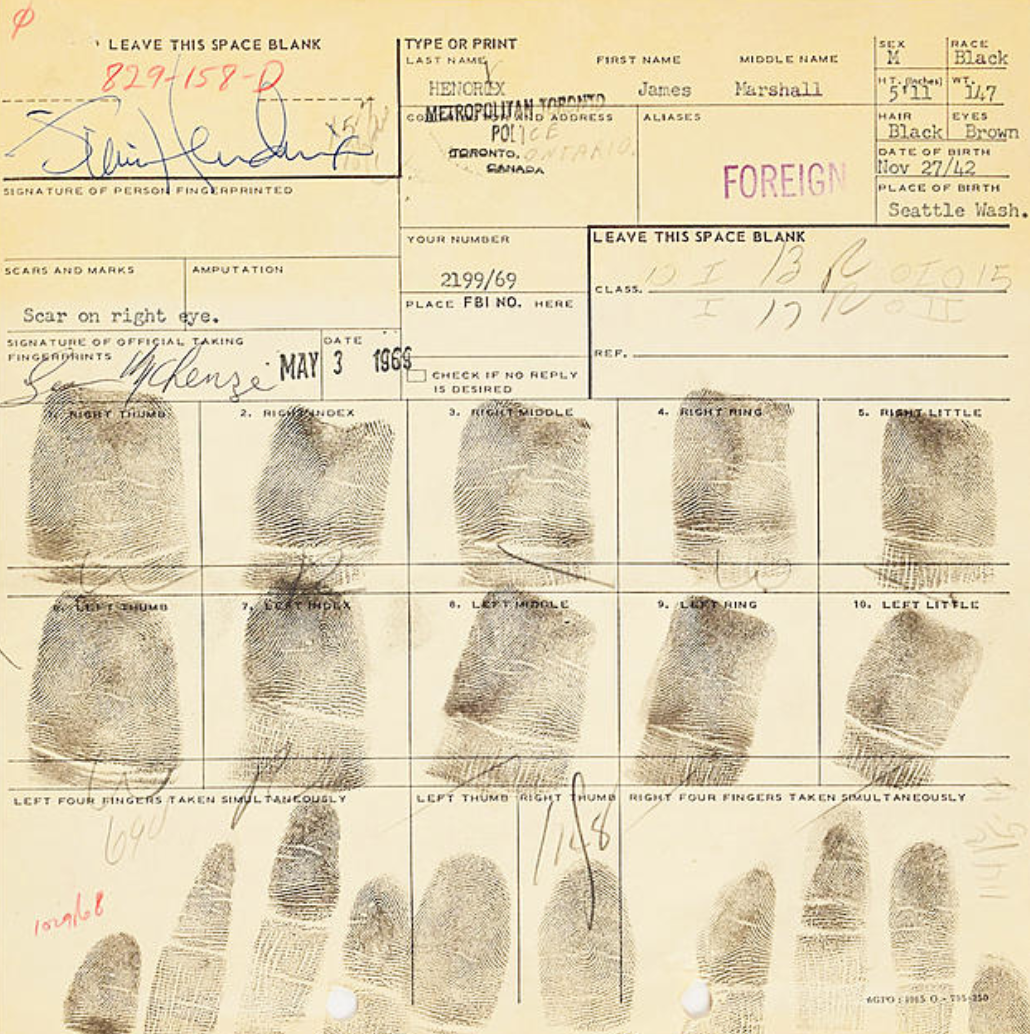 LEAVE THIS SPACE BLANK
829-158-D
SIGNATURE OF PERSON FINGERPRINTED
TYPE OR PRINT
LAST NAME FIRST NAME MIDDLE NAME
HENDRIX James Marshall
METROPOLITAN TORONTO
POLICE
TORONTO, ONTARIO.
CANADA
ADDRESS
ALIASES
FOREIGN
SEX RACE
M Black
HT. (Inches) WT.
5'11 147
HAIR EYES
Black Brown
DATE OF BIRTH
Nov 27/42
PLACE OF BIRTH
Seattle Wash.
YOUR NUMBER
2199/69
LEAVE THIS SPACE BLANK
CLASS.
13 R
I 17
REF.
SCARS AND MARKS AMPUTATION
Scar on right eye.
PLACE FBI NO. HERE
SIGNATURE OF OFFICIAL TAKING
FINGERPRINTS
McKenzie
DATE
MAY 3 1969
CHECK IF NO REPLY
IS DESIRED
1. RIGHT THUMB 2. RIGHT INDEX 3. RIGHT MIDDLE 4. RIGHT RING 5. RIGHT LITTLE
6. LEFT THUMB 7. LEFT INDEX 8. LEFT MIDDLE 9. LEFT RING 10. LEFT LITTLE
LEFT FOUR FINGERS TAKEN SIMULTANEOUSLY LEFT THUMB RIGHT THUMB RIGHT FOUR FINGERS TAKEN SIMULTANEOUSLY